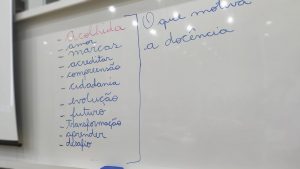 Acolhida
- amor
- marcar
- acreditar
- compreensão
- cidadania
- evolução
- futuro
- transformação
- aprender
- desafio
O que motiva
a docência